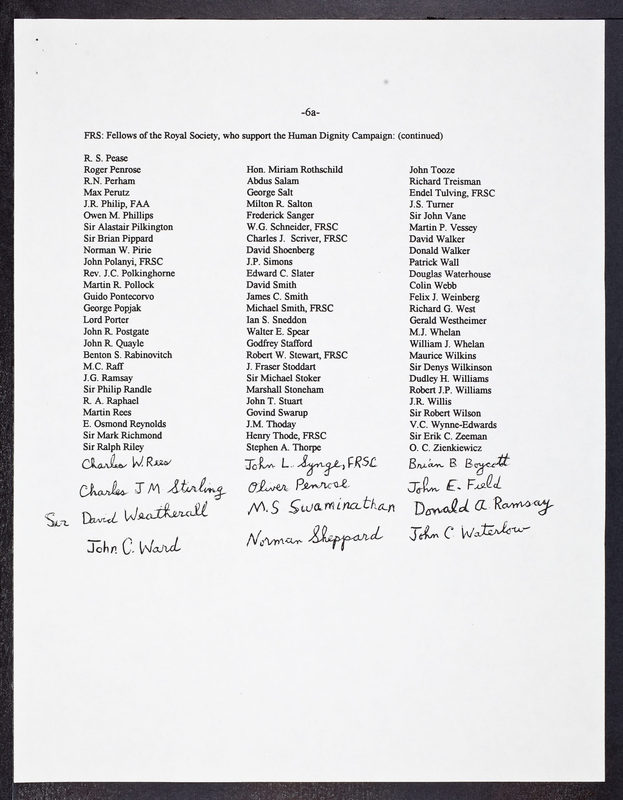 -6a-
FRS: Fellows of the Royal Society, who support the Human Dignity Campaign: (continued)
R. S. Pease
Roger Penrose
R.N. Perham
Max Perutz
J.R. Philip, FAA
Owen M. Phillips
Sir Alastair Pilkington
Sir Brian Pippard
Norman W. Pirie
John Polanyi, FRSC
Rev. J.C. Polkinghorne
Martin R. Pollock
Guido Pontecorvo
George Popjak
Lord Porter
John R. Postgate
John R. Quayle
Benton S. Rabinovitch
M.C. Raff
J.G. Ramsay
Sir Philip Randle
R. A. Raphael
Martin Rees
E. Osmond Reynolds
Sir Mark Richmond
Sir Ralph Riley
Charles W. Rees
Charles J M Stirling
Sir David Weatherall
John C. Ward
Hon. Miriam Rothschild
Abdus Salam
George Salt
Milton R. Salton
Frederick Sanger
W.G. Schneider, FRSC
Charles J. Scriver, FRSC
David Shoenberg
J.P. Simons
Edward C. Slater
David Smith
James C. Smith
Michael Smith, FRSC
Ian S. Sneddon
Walter E. Spear
Godfrey Stafford
Robert W. Stewart, FRSC
J. Fraser Stoddart
Sir Michael Stoker
Marshall Stoneham
John T. Stuart
Govind Swarup
J.M. Thoday
Henry Thode, FRSC
Stephen A. Thorpe
John L. Synge, FRSC
Oliver Penrose
M.S Swaminathan
Norman Sheppard
John Tooze
Richard Treisman
Endel Tulving, FRSC
J.S. Turner
Sir John Vane
Martin P. Vessey
David Walker
Donald Walker
Patrick Wall
Douglas Waterhouse
Colin Webb
Felix J. Weinberg
Richard G. West
Gerald Westheimer
M.J. Whelan
William J. Whelan
Maurice Wilkins
Sir Denys Wilkinson
Dudley H. Williams
Robert J.P. Williams
J.R. Willis
Sir Robert Wilson
V.C. Wynne-Edwards
Sir Erik C. Zeeman
O. C. Zienkiewicz
Brian B Boycott
John E. Field
Donald A Ramsay
John C Waterlow